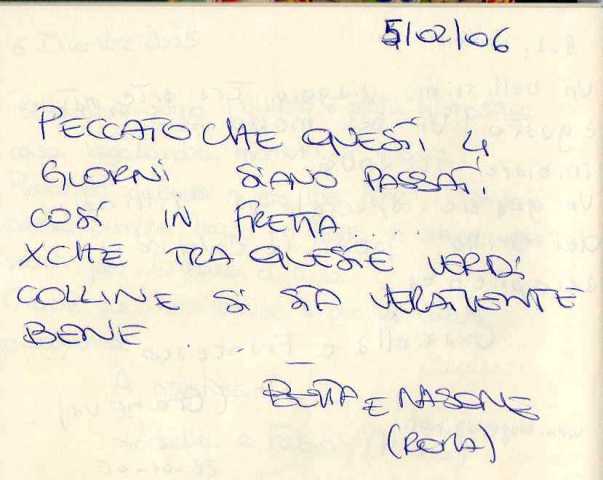 5/02/06
PECCATO CHE QUESTI 4
GIORNI SIANO PASSATI
COSÌ IN FRETTA...
XCHE TRA QUESTE VERDI
COLLINE SI STA VERAMENTE
BENE...
BETTA E NASONE
(ROMA)